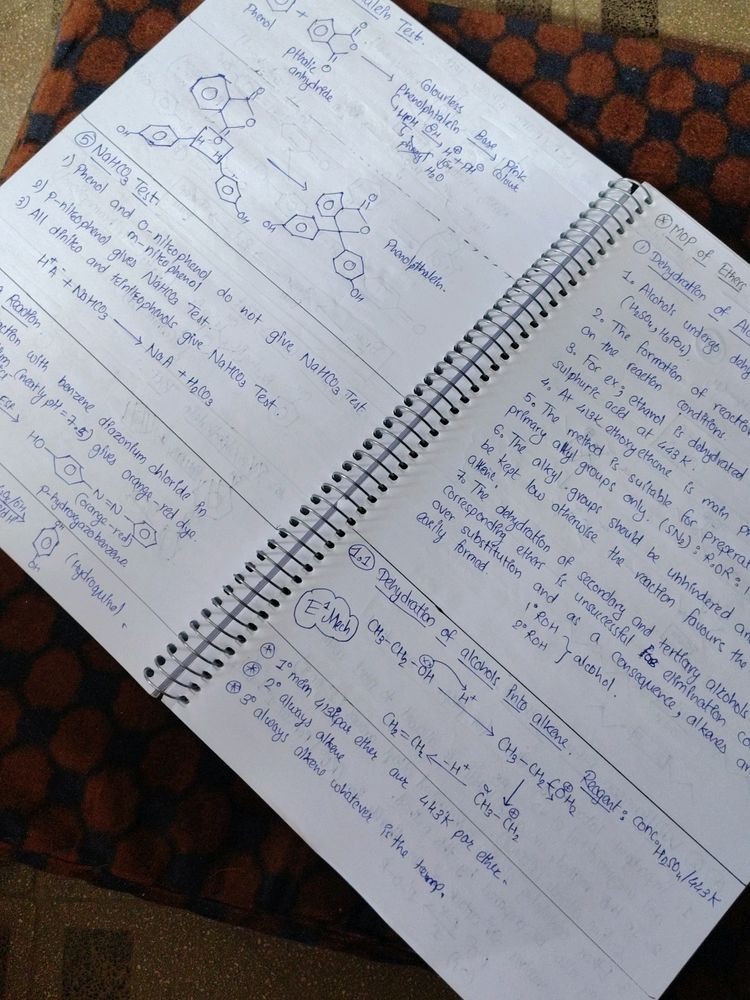 alein Test.
Phenol
+
pthalic
anhydride
O
O
O
Colourless
phenolphtalein
Base
Pink
Colour
H2O
OH
H H
OH
OH
OH
Phenolpthalein.
⑤ NaHCO3 Test
1) Phenol and O-nitrophenol do not give NaHCO3 Test
m-nitrophenol
2) p-nitrophenol gives NaHCO3 Test.
3) All dinitro and trinitrophenols give NaHCO3 Test.
H+A- + NaHCO3 → NaA + H2CO3
Reaction.
with benzene diazonium chloride in
(nearly pH = 7.5) gives orange-red dye.
HO N=N
(orange-red)
p-hydroxyazobenzene
OH
OH
(Hydroquinol.
* MOP of Ethers
① Dehydration of Alc
1. Alcohols undergo dehy
(H2SO4, H3PO4)
2. The formation of reaction
on the reaction conditions.
3. For ex; ethanol is dehydrated
sulphuric acid at 443K.
4. At 413K ethoxyethane is main pr
5. The method is suitable for preperat
primary alkyl groups only. (SN2) : R-OR :
6. The alkyl groups should be unhindered an
be kept low otherwise the reaction favours the
alkene.
7. The dehydration of secondary and tertiary alcohols
corresponding ether is unsuccessful for elimination co
over substitution and as a consequence, alkanes ar
easily formed.
1° ROH
2° ROH } alcohol.
1.1 Dehydration of alcohols into alkene. Reagent : conc. H2SO4/443K
E-1 Mech
CH3-CH2-OH → H+ → CH3-CH2-OH2
CH2=CH2 ← -H+ CH3-CH2
* 1° mein 413K par ether aur 443K par ethe.
* 2° always alkene
* 3° always alkene whatever is the temp.